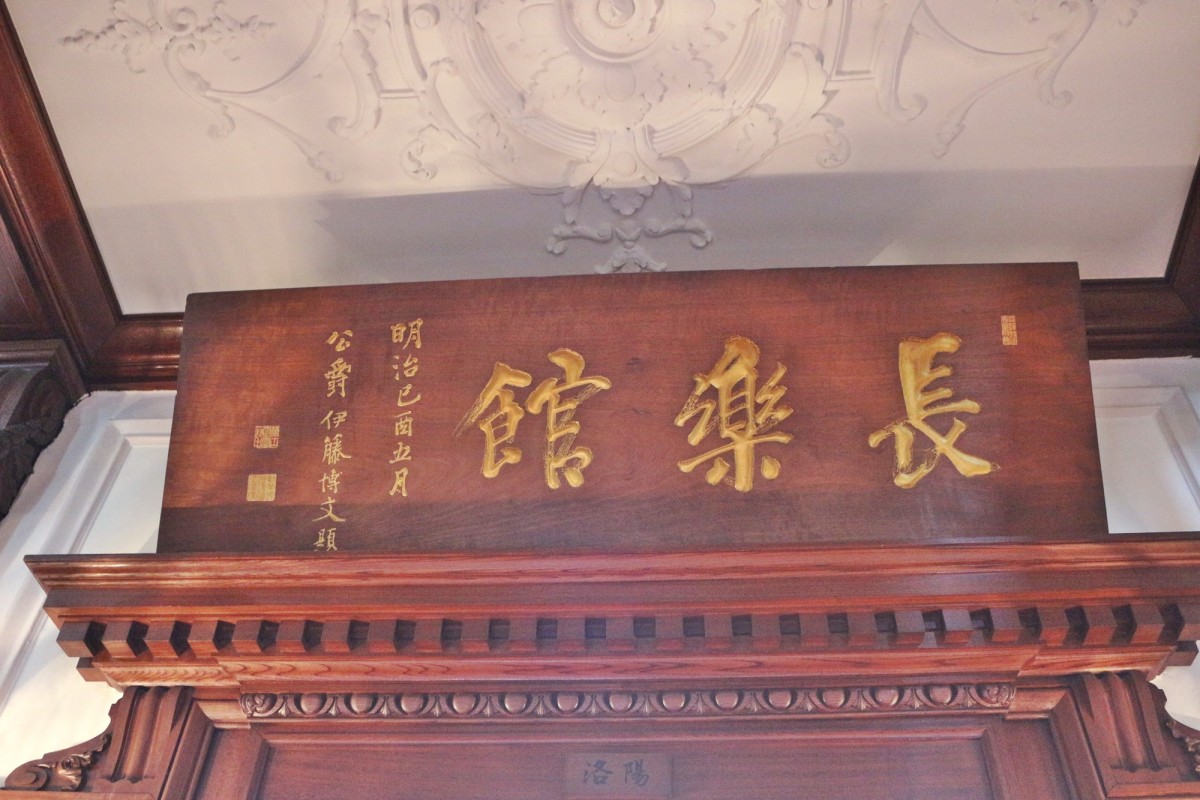 長樂館
明治己酉五月
公爵伊藤博文題
陽洛